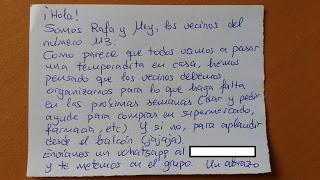 ¡Hola!
Somos Rafa y Mey, los vecinos del
número 113.
Como parece que todos vamos a pasar
una temporadita en casa, hemos
pensado que los vecinos debemos
organizarnos para lo que haga falta
en las próximas semanas (dar y pedir
ayuda para compras en supermercado,
farmacia, etc) Y si no, para aplaudir
desde el balcón (jajaja).
Envíanos un whatsapp al
y te metemos en el grupo. Un abrazo